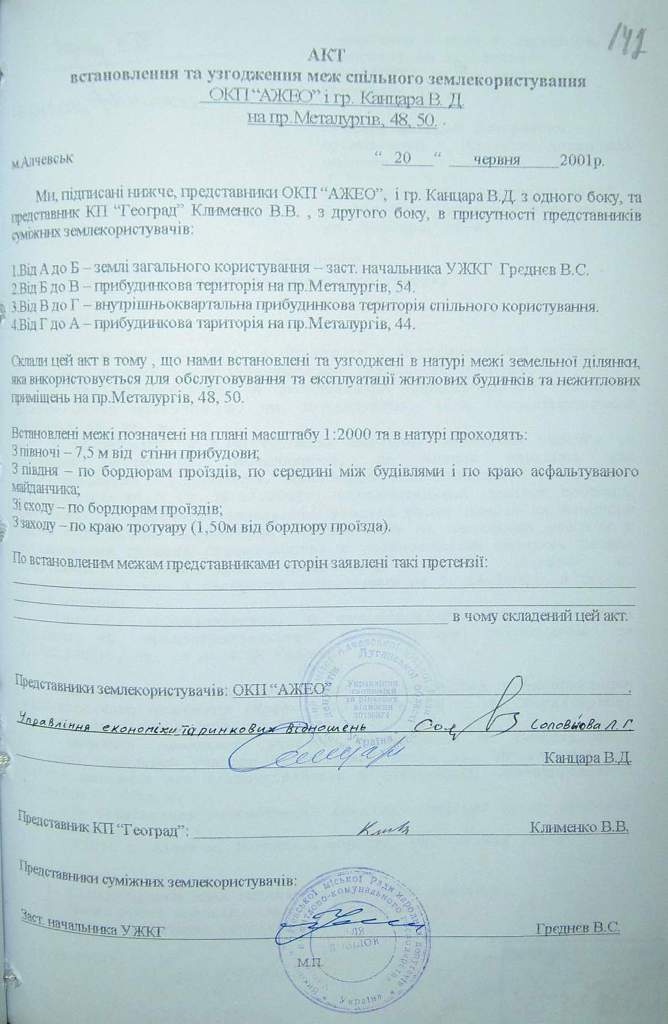 142
АКТ
встановлення та узгодження меж спільного землекористування
ОКП “АЖЕО” і гр. Канцара В. Д.
на пр.Металургів, 48, 50. .
м.Алчевськ “ 20 “ червня 2001р.
Ми, підписані нижче, представники ОКП “АЖЕО”, і гр. Канцара В.Д. з одного боку, та
представник КП “Географ” Клименко В.В. , з другого боку, в присутності представників
суміжних землекористувачів:
1.Від А до Б – землі загального користування – заст. начальника УЖКГ Греднєв В.С.
2.Від Б до В – прибудинкова територія на пр.Металургів, 54.
3.Від В до Г – внутрішньоквартальна прибудинкова територія спільного користування.
4.Від Г до А – прибудинкова тариторія на пр.Металургів, 44.
Склали цей акт в тому , що нами встановлені та узгоджені в натурі межі земельної ділянки,
яка використовується для обслуговування та експлуатації житлових будинків та нежитлових
приміщень на пр.Металургів, 48, 50.
Встановлені межі позначені на плані масштабу 1:2000 та в натурі проходять:
З півночі – 7,5 м від стіни прибудови;
З півдня – по бордюрам проїздів, по середині між будівлями і по краю асфальтуваного
майданчика;
Зі сходу – по бордюрам проїздів;
З заходу – по краю тротуару (1,50м від бордюру проїзда).
По встановленим межам представниками сторін заявлені такі претензії:
в чому складений цей акт.
Представники землекористувачів: ОКП “АЖЕО” .
Управління економіки та ринкових відношень Соловйова Л.Г.
Канцара В.Д.
Представник КП “Геоград”: Клименко В.В.
Представники суміжних землекористувачів:
Заст. начальника УЖКГ Греднєв В.С.
М.П.
Україна